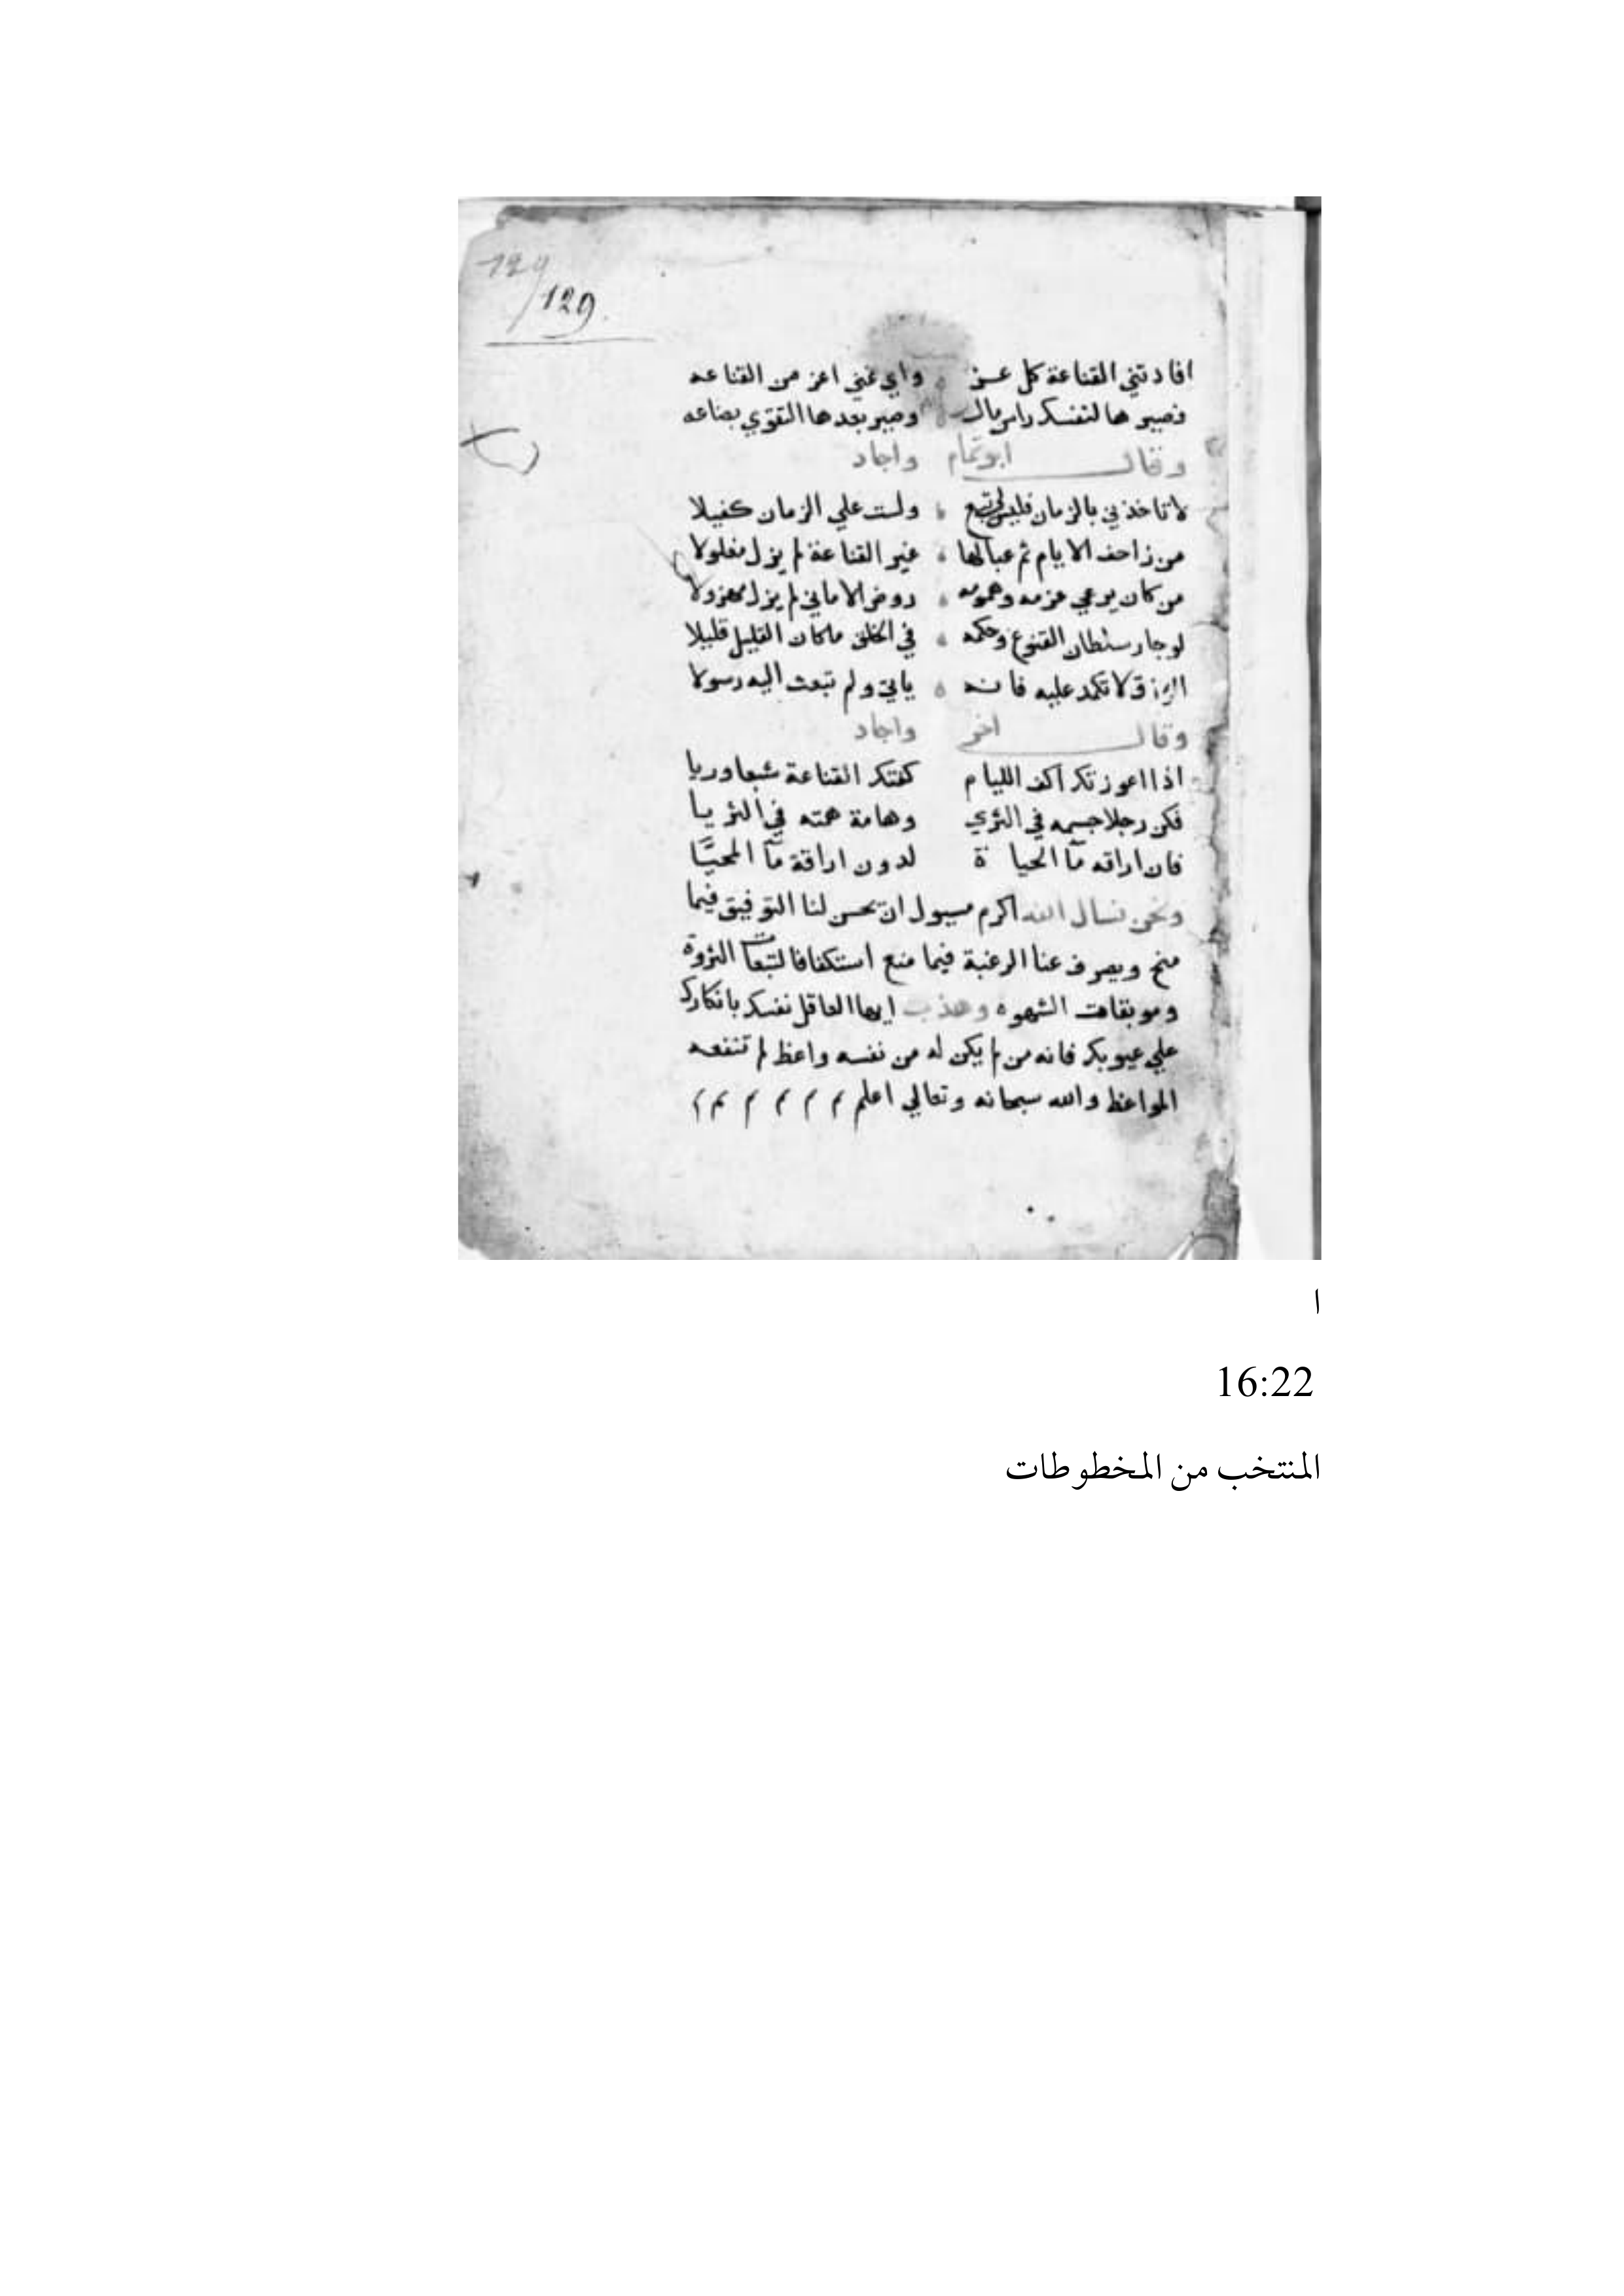 129
129.
افادتني القناعة كل عز واي غني اعز من القناعه
فصيرها لنفسك راس مال وصير بعدها التقوي بضاعه
وقال ابو تمام واجاد
لا تاخذني بالزمان فليس لي تبع ولست علي الزمان كفيلا
من زاحف الايام ثم عبا لها غير القناعة لم يزل مفلولا
من كان مرعي عزمه وهمومه روض الاماني لم يزل مهزولا
لو جار سلطان القنوع وحكمه في الخلق ماكان القليل قليلا
الرزق لا تكمد عليه فانه ياتي ولم تبعث اليه رسولا
وقال اخر واجاد
اذا اعوزتك اكف الليام كفتك القناعة شبعا وريا
فكن رجلا جسمه في الثري وهامة همته في الثريا
فان اراقه مآ الحياة لدون اراقة مآ المحيّا
ونحن نسال الله اكرم مسيول ان يحسن لنا التوفيق فيما
منح ويصرف عنا الرغبة فيما منع استكفافا لتبعات الثروة
وموبقات الشهوه وهذب ايها العاقل نفسك بانكارك
علي عيوبك فانه من لم يكن له من نفسه واعظ لم تنفعه
المواعظ والله سبحانه وتعالي اعلم م م م م م م م
ا
16:22
المنتخب من المخطوطات